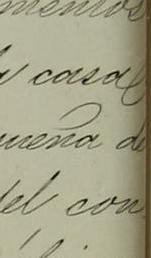 mentos
casa
ueña de
del con